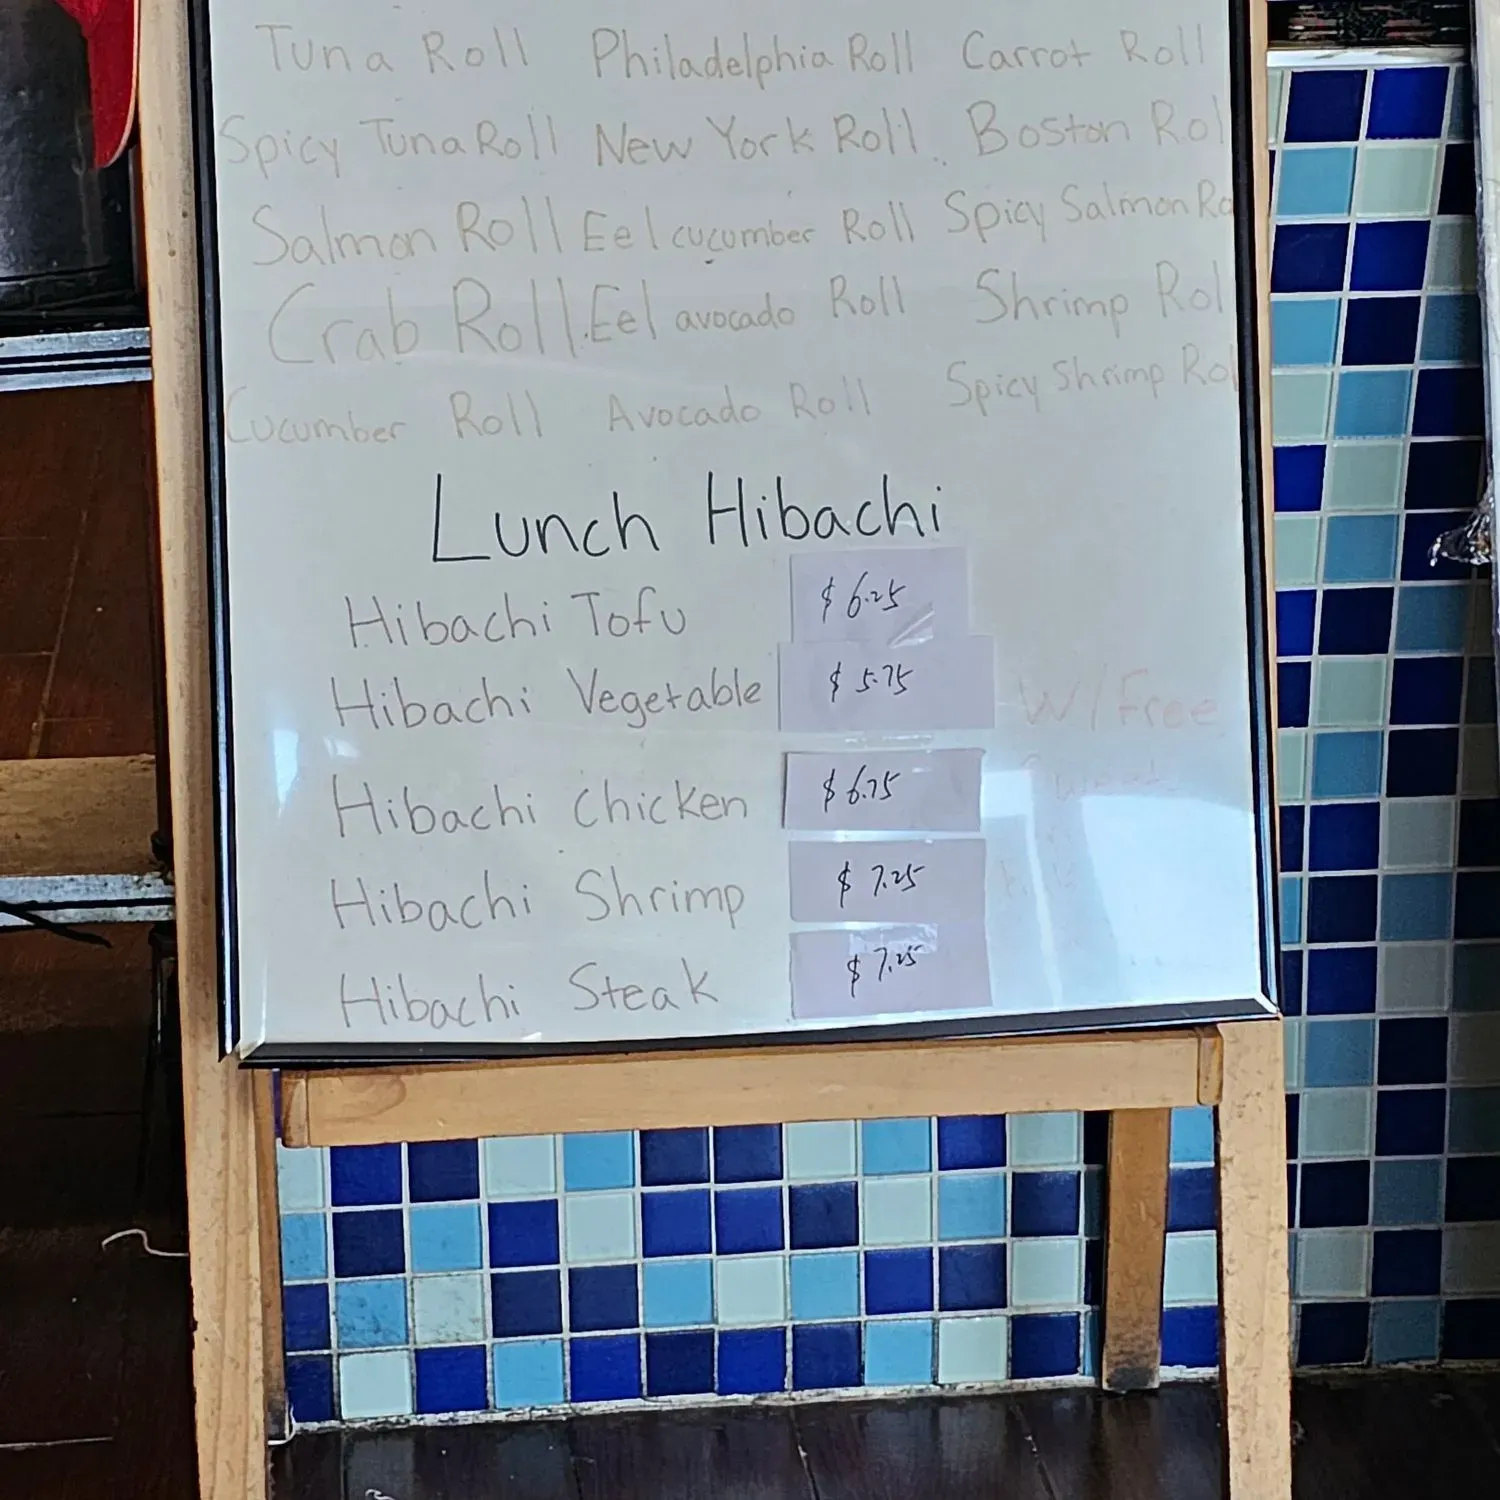 Tuna Roll Philadelphia Roll Carrot Roll
Spicy Tuna Roll New York Roll Boston Rol
Salmon Roll Eel cucumber Roll Spicy Salmon Ro
Crab Roll Eel avocado Roll Shrimp Rol
Cucumber Roll Avocado Roll Spicy Shrimp Rol
Lunch Hibachi
Hibachi Tofu $ 6.25
Hibachi Vegetable $ 5.75 W/Free
Hibachi Chicken $ 6.75
Hibachi Shrimp $ 7.25
Hibachi Steak $ 7.25